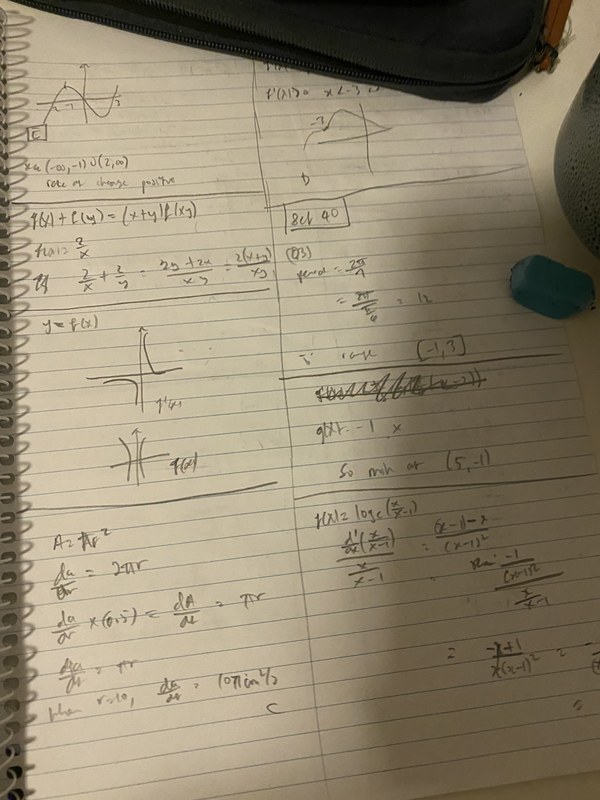 E
(-∞, -1) ∪ (2, ∞)
rate of change positive
f(x) + f(y) = (x+y) f(xy)
f(x) = 2/x
2/x + 2/y = 2y + 2x / xy = 2(x+y) / xy
y = f(x)
f'(x)
f(x)
A = πr²
da/dr = 2πr
da/dr × (0.5) = dA/dt = πr
da/dt = πr
when r=10, da/dt = 10π cm²/s
C
f'(x)>0 x<-3
-3
D
Set 40
Q3)
period = 2π/n
= 2π / π/6 = 12
[-1, 3]
g(x) = -1 x
So min at (5, -1)
f(x) = loge(x/x-1)
d/dx (x/x-1) / x/x-1 = (x-1)-x / (x-1)²
-1/(x-1)² / x/x-1
= -x+1 / x(x-1)² =
=